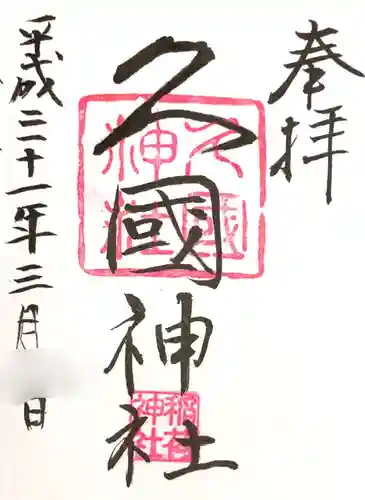 奉拝
久國神社
久國神社
稲荷神社
平成三十一年三月 日